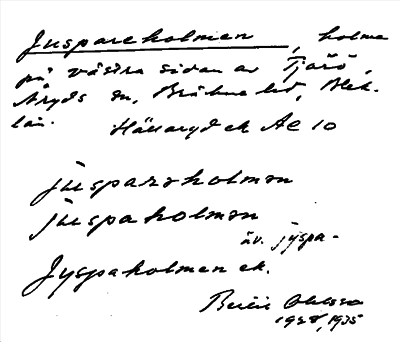 Juspareholmen, holme
på västra sidan av Tjärö,
Åryds sn, Bräkne hd, Blek.
län. Hällaryd ek AE 10
juspareholmen
juspaholmen
äv. jyspa-
Jyspaholmen ek.
Bertil Ohlsson
1928, 1935